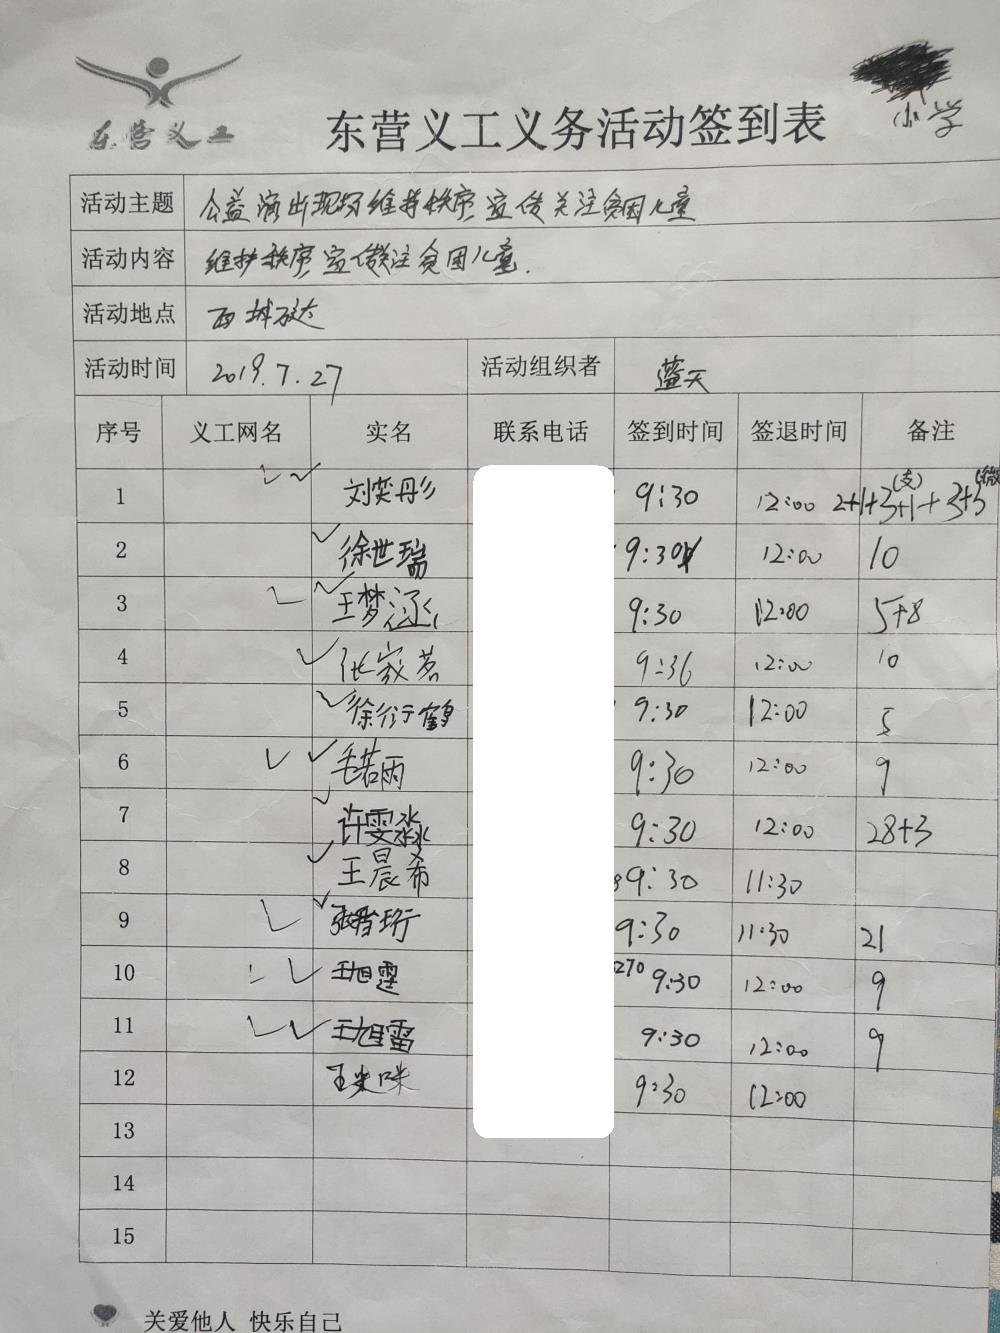 小学
东营义工
东营义工义务活动签到表
活动主题 公益演出现场维持秩序宣传关注贫困儿童
活动内容 维护秩序宣传关注贫困儿童.
活动地点 西城万达
活动时间 2019.7.27 活动组织者 蓝天
序号 义工网名 实名 联系电话 签到时间 签退时间 备注
1 刘奕彤 9:30 12:00 2+1+3+1(支)+3+5(微
2 徐世瑞 9:30 12:00 10
3 王梦涵 9:30 12:00 5+8
4 张家茗 9:36 12:00 10
5 徐衍鹤 9:30 12:00 5
6 毛若雨 9:30 12:00 9
7 许雯淼 9:30 12:00 28+3
8 王晨希 9:30 11:30
9 珩 9:30 11:30 21
10 王旭霆 270 9:30 12:00 9
11 王旭雷 9:30 12:00 9
12 王米咪 9:30 12:00
13
14
15
关爱他人 快乐自己